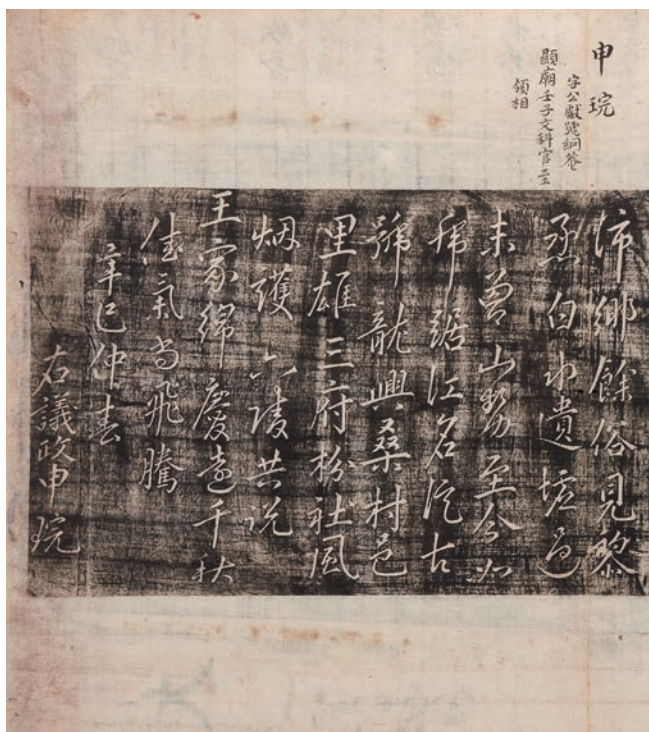 申琓
字公獻號絅菴
顯廟壬子文科官至
領相
沛鄉餘俗見黎
烝白水遺墟過
未曾山勢至今如
虎踞江名從古
號龍興桑村邑
里雄三府枌社風
烟護六陵共說
王家綿慶遠千秋
佳氣尚飛騰
辛巳仲春
右議政申琓